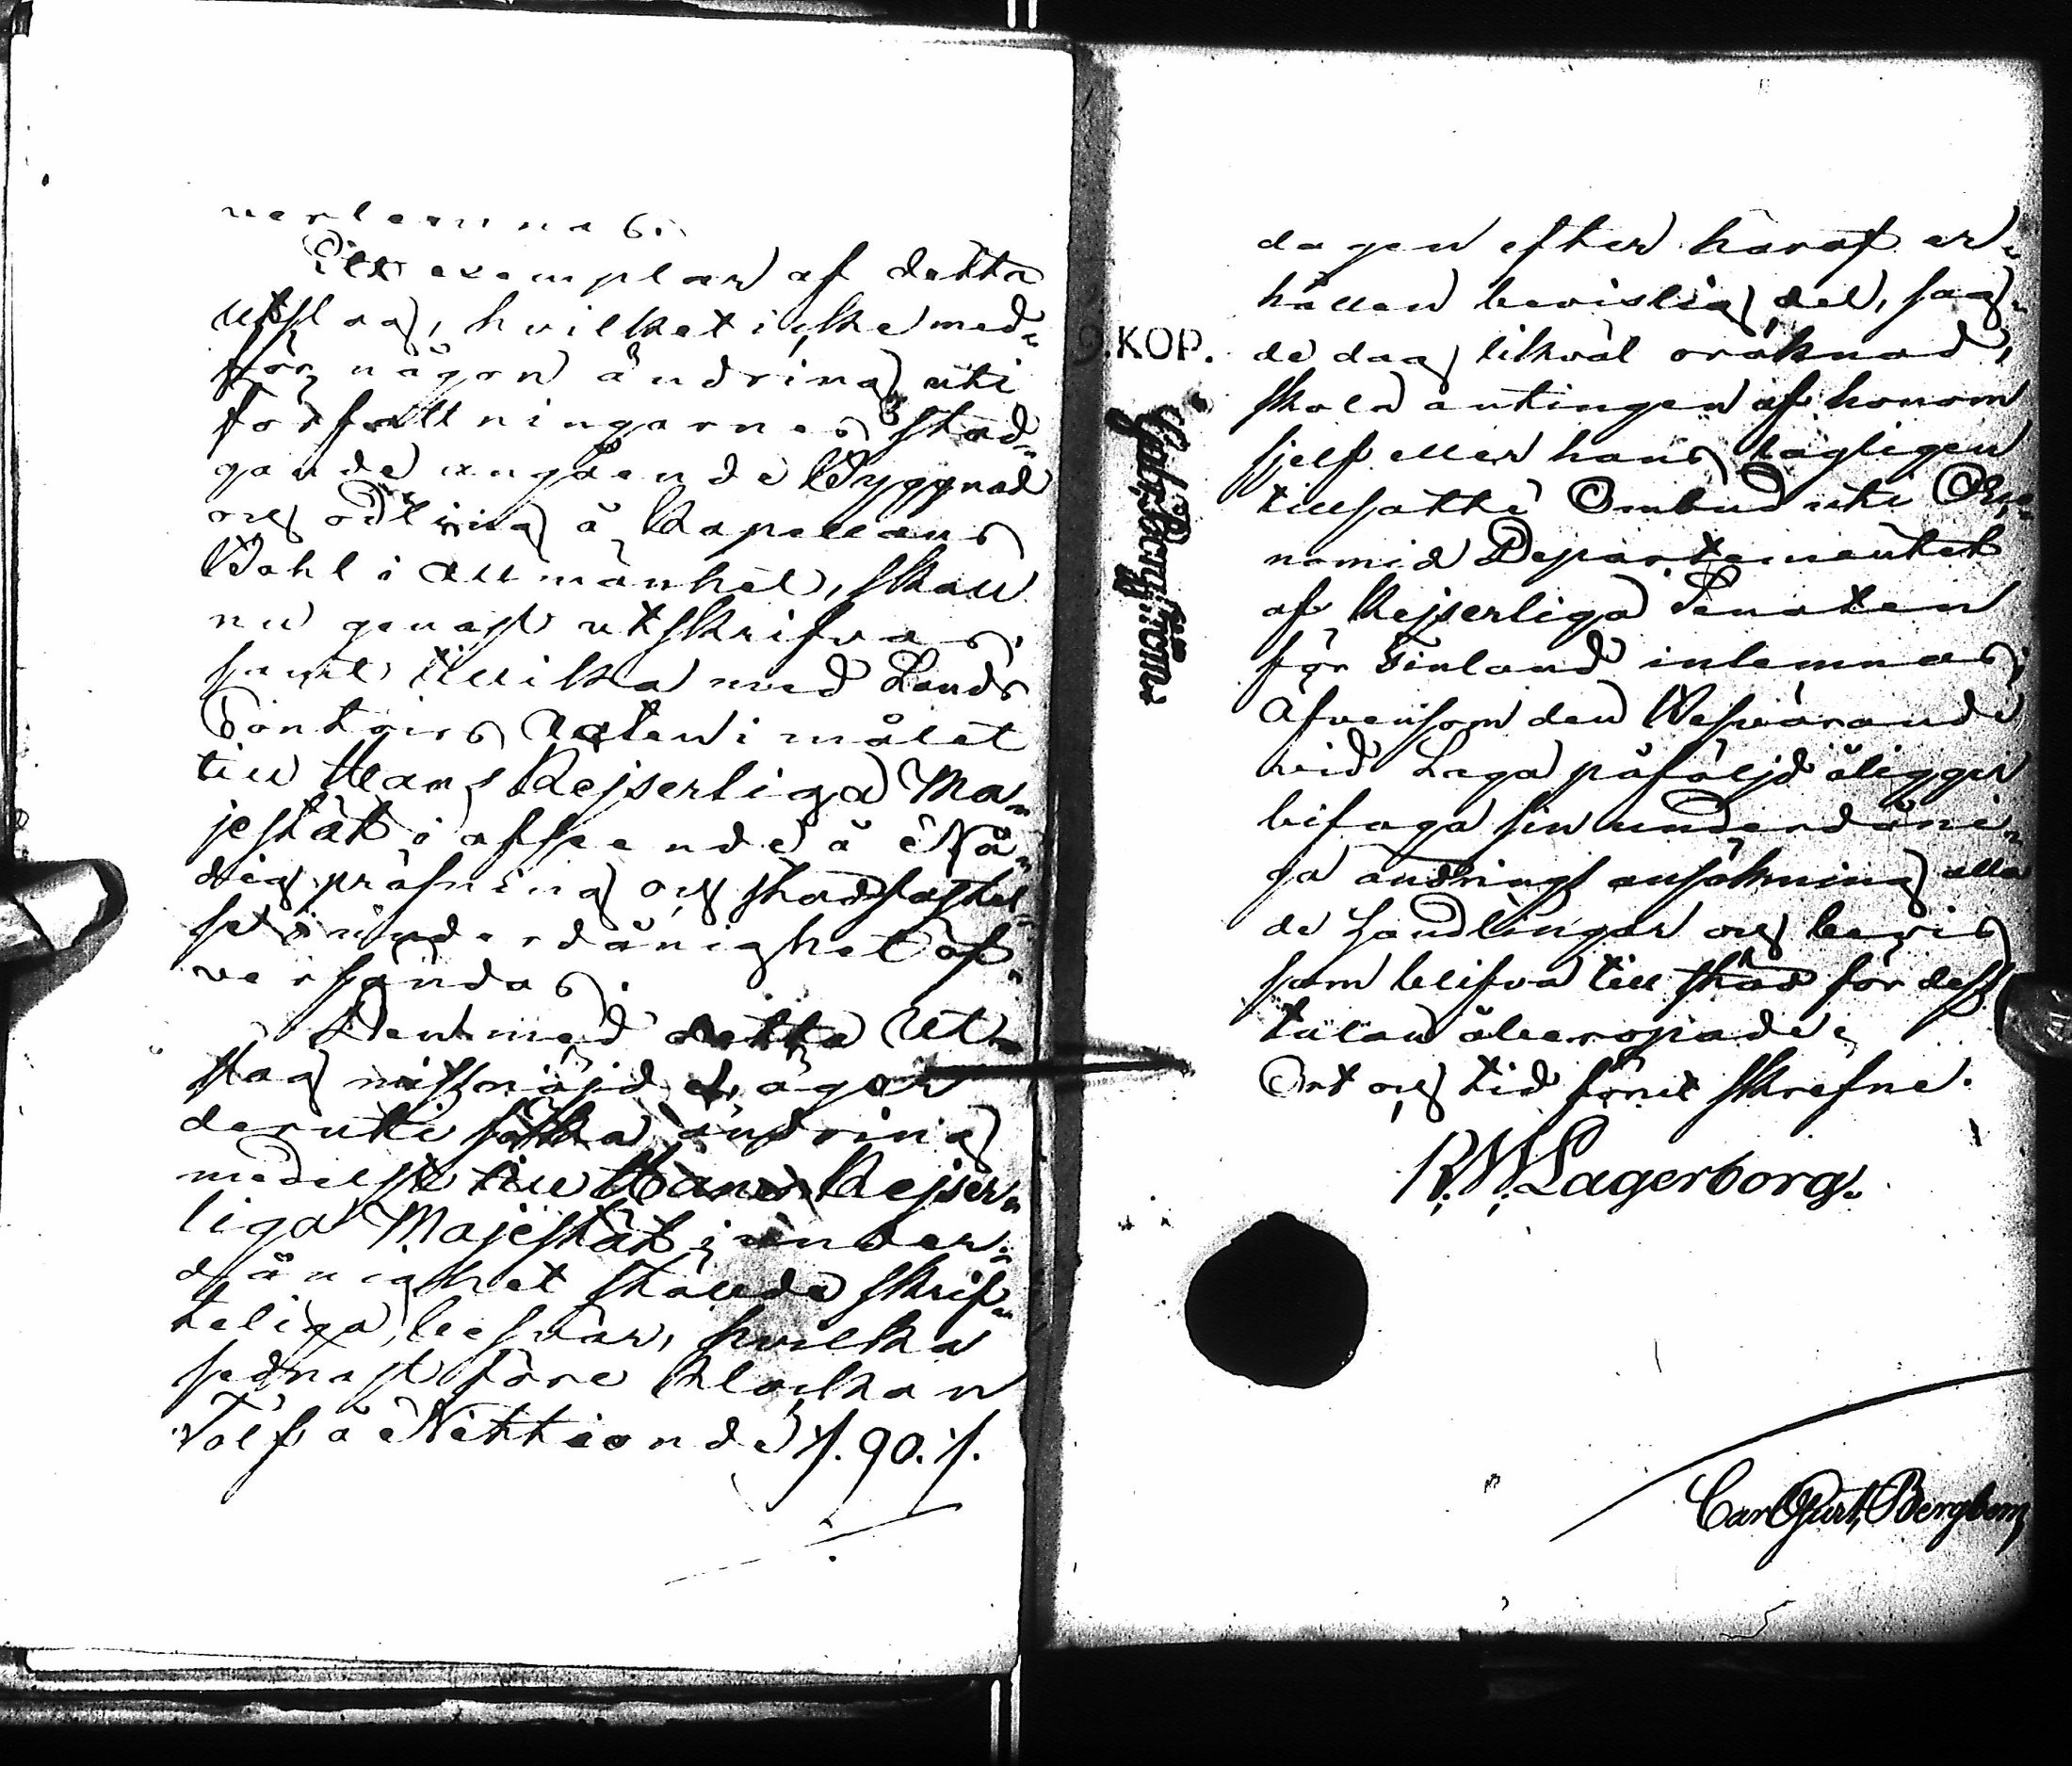 verlemnas.
Ett exemplar af detta
utslag, hvilket icke med-
för någon ändring uti
författningarnes stad-
gande angående Byggnad
och odling å Kapellans
Bohl i allmänhet, skall
nu genast utskrifvas,
samt tillika med Lands
Contoirs Acten i målet
till Hans Kejserliga Ma-
jestät i afseende å Nå-
dig pröfning och stadfästel-
se i underdånighet öf-
versändas.
Den med detta Ut-
slag missnöjd är, äger
deruti söka ändring
medelst till Hans Kejser-
liga Majestät i under-
dånighet stälda skrif-
teliga besvär, hvilka
sednast före klockan
Tolf å Nittionde /. 90. /.
dagen efter häraf er-
hållen bevislig del, sag-
de dag likväl oräknad,
skola antingen af honom
sjelf eller hans lagligen
tillsatte Ombud uti Oeco-
nomie Departementet
af Kejserliga Senaten
för Finland inlemnas;
Äfvensom den Besvärande
vid Laga påföljd åligger
bifoga sin underdåni-
ga ändrings ansökning alla
de Handlingar och bevis
som blifva till stöd för dess
talan åberopade;
Ort och tid förut skrefne.
R.W. Lagerborg.
Carl Gust. Bergbom
KOP.